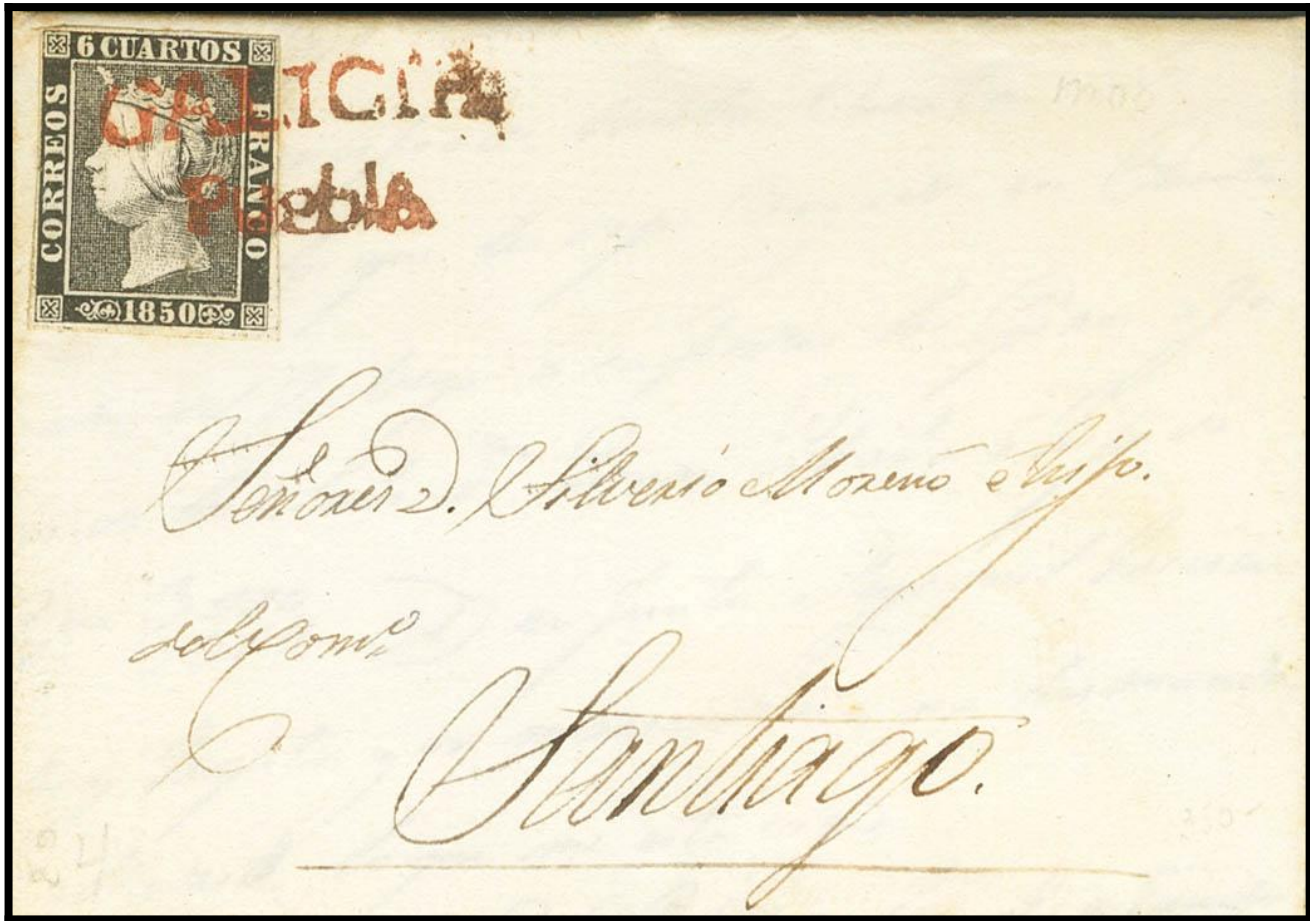 6 CUARTOS
CORREOS
FRANCO
1850
GALICIA
Puebla
Señores D. Silverio Moreno é hijo.
del Comº
Santiago.